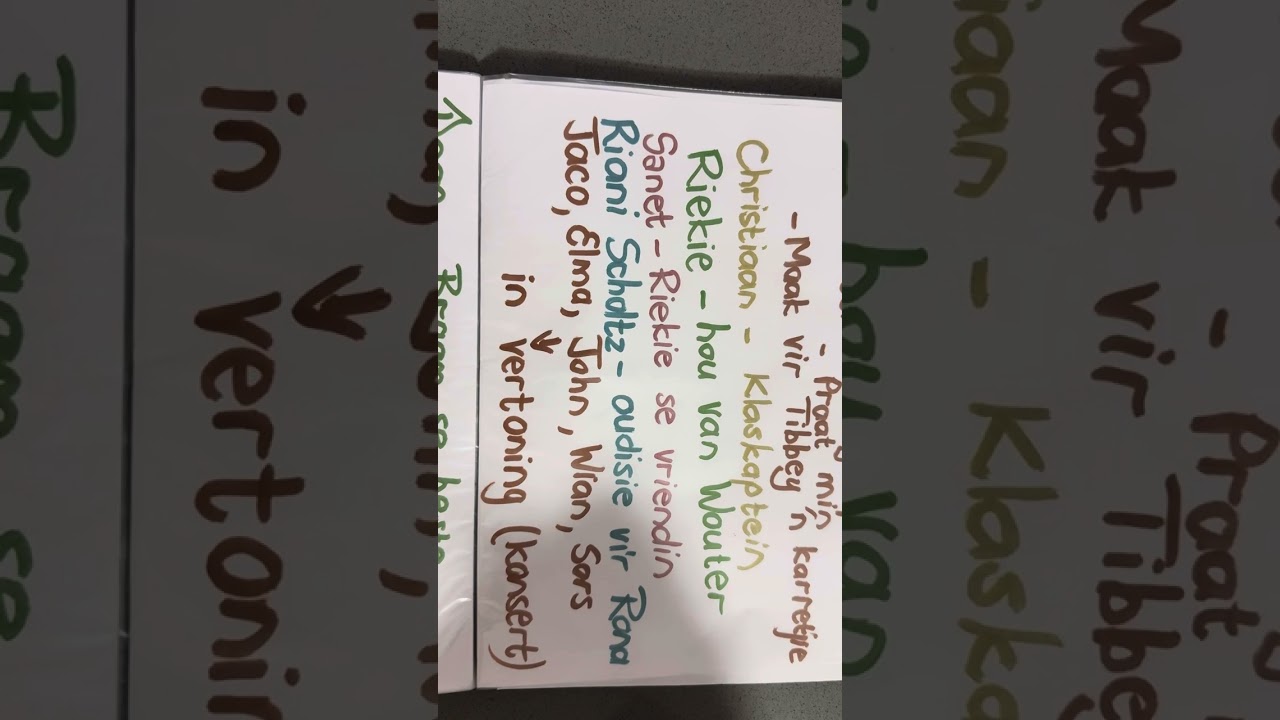 - Praat min
- Maak vir Tibbey 'n karretjie
Christiaan - Klaskaptein
Riekie - hou van Wouter
Sanet - Riekie se vriendin
Riani Scholtz - oudisie vir Rona
Jaco, Elma, John, Wian, Sors
↓
in vertoning (konsert)